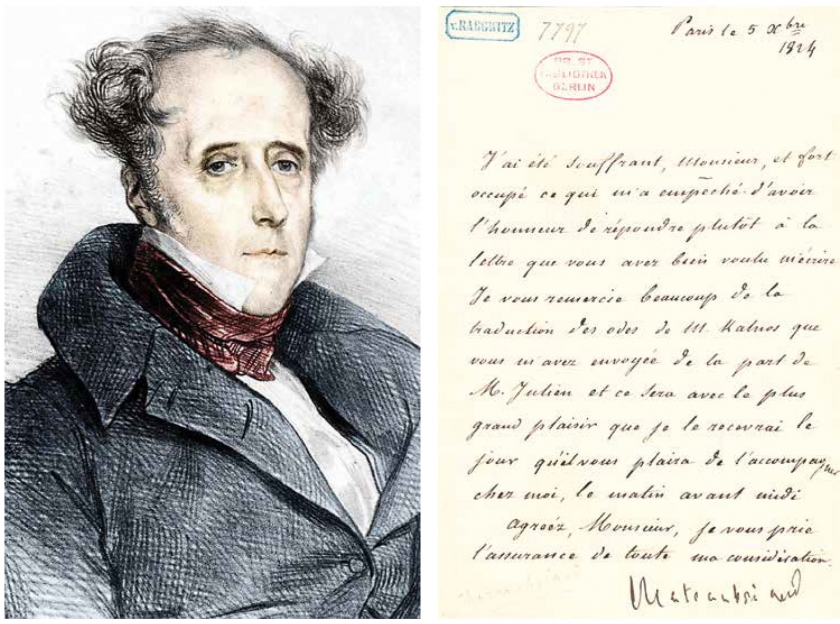 v.RADOWITZ
7797
Paris le 5 Xbre
1824
BIBLIOTHEK
BERLIN
J'ai été souffrant, Monsieur, et fort
occupé ce qui m'a empêché d'avoir
l'honneur de répondre plutôt à la
lettre que vous avez bien voulu m'écrire
Je vous remercie beaucoup de la
traduction des odes de M. Kalvos que
vous m'avez envoyée de la part de
M. Julien et ce sera avec le plus
grand plaisir que je le recevrai le
jour qu'il vous plaira de l'accompagner
chez moi, le matin avant midi
Agréez, Monsieur, je vous prie
l'assurance de toute ma considération.
Chateaubriand